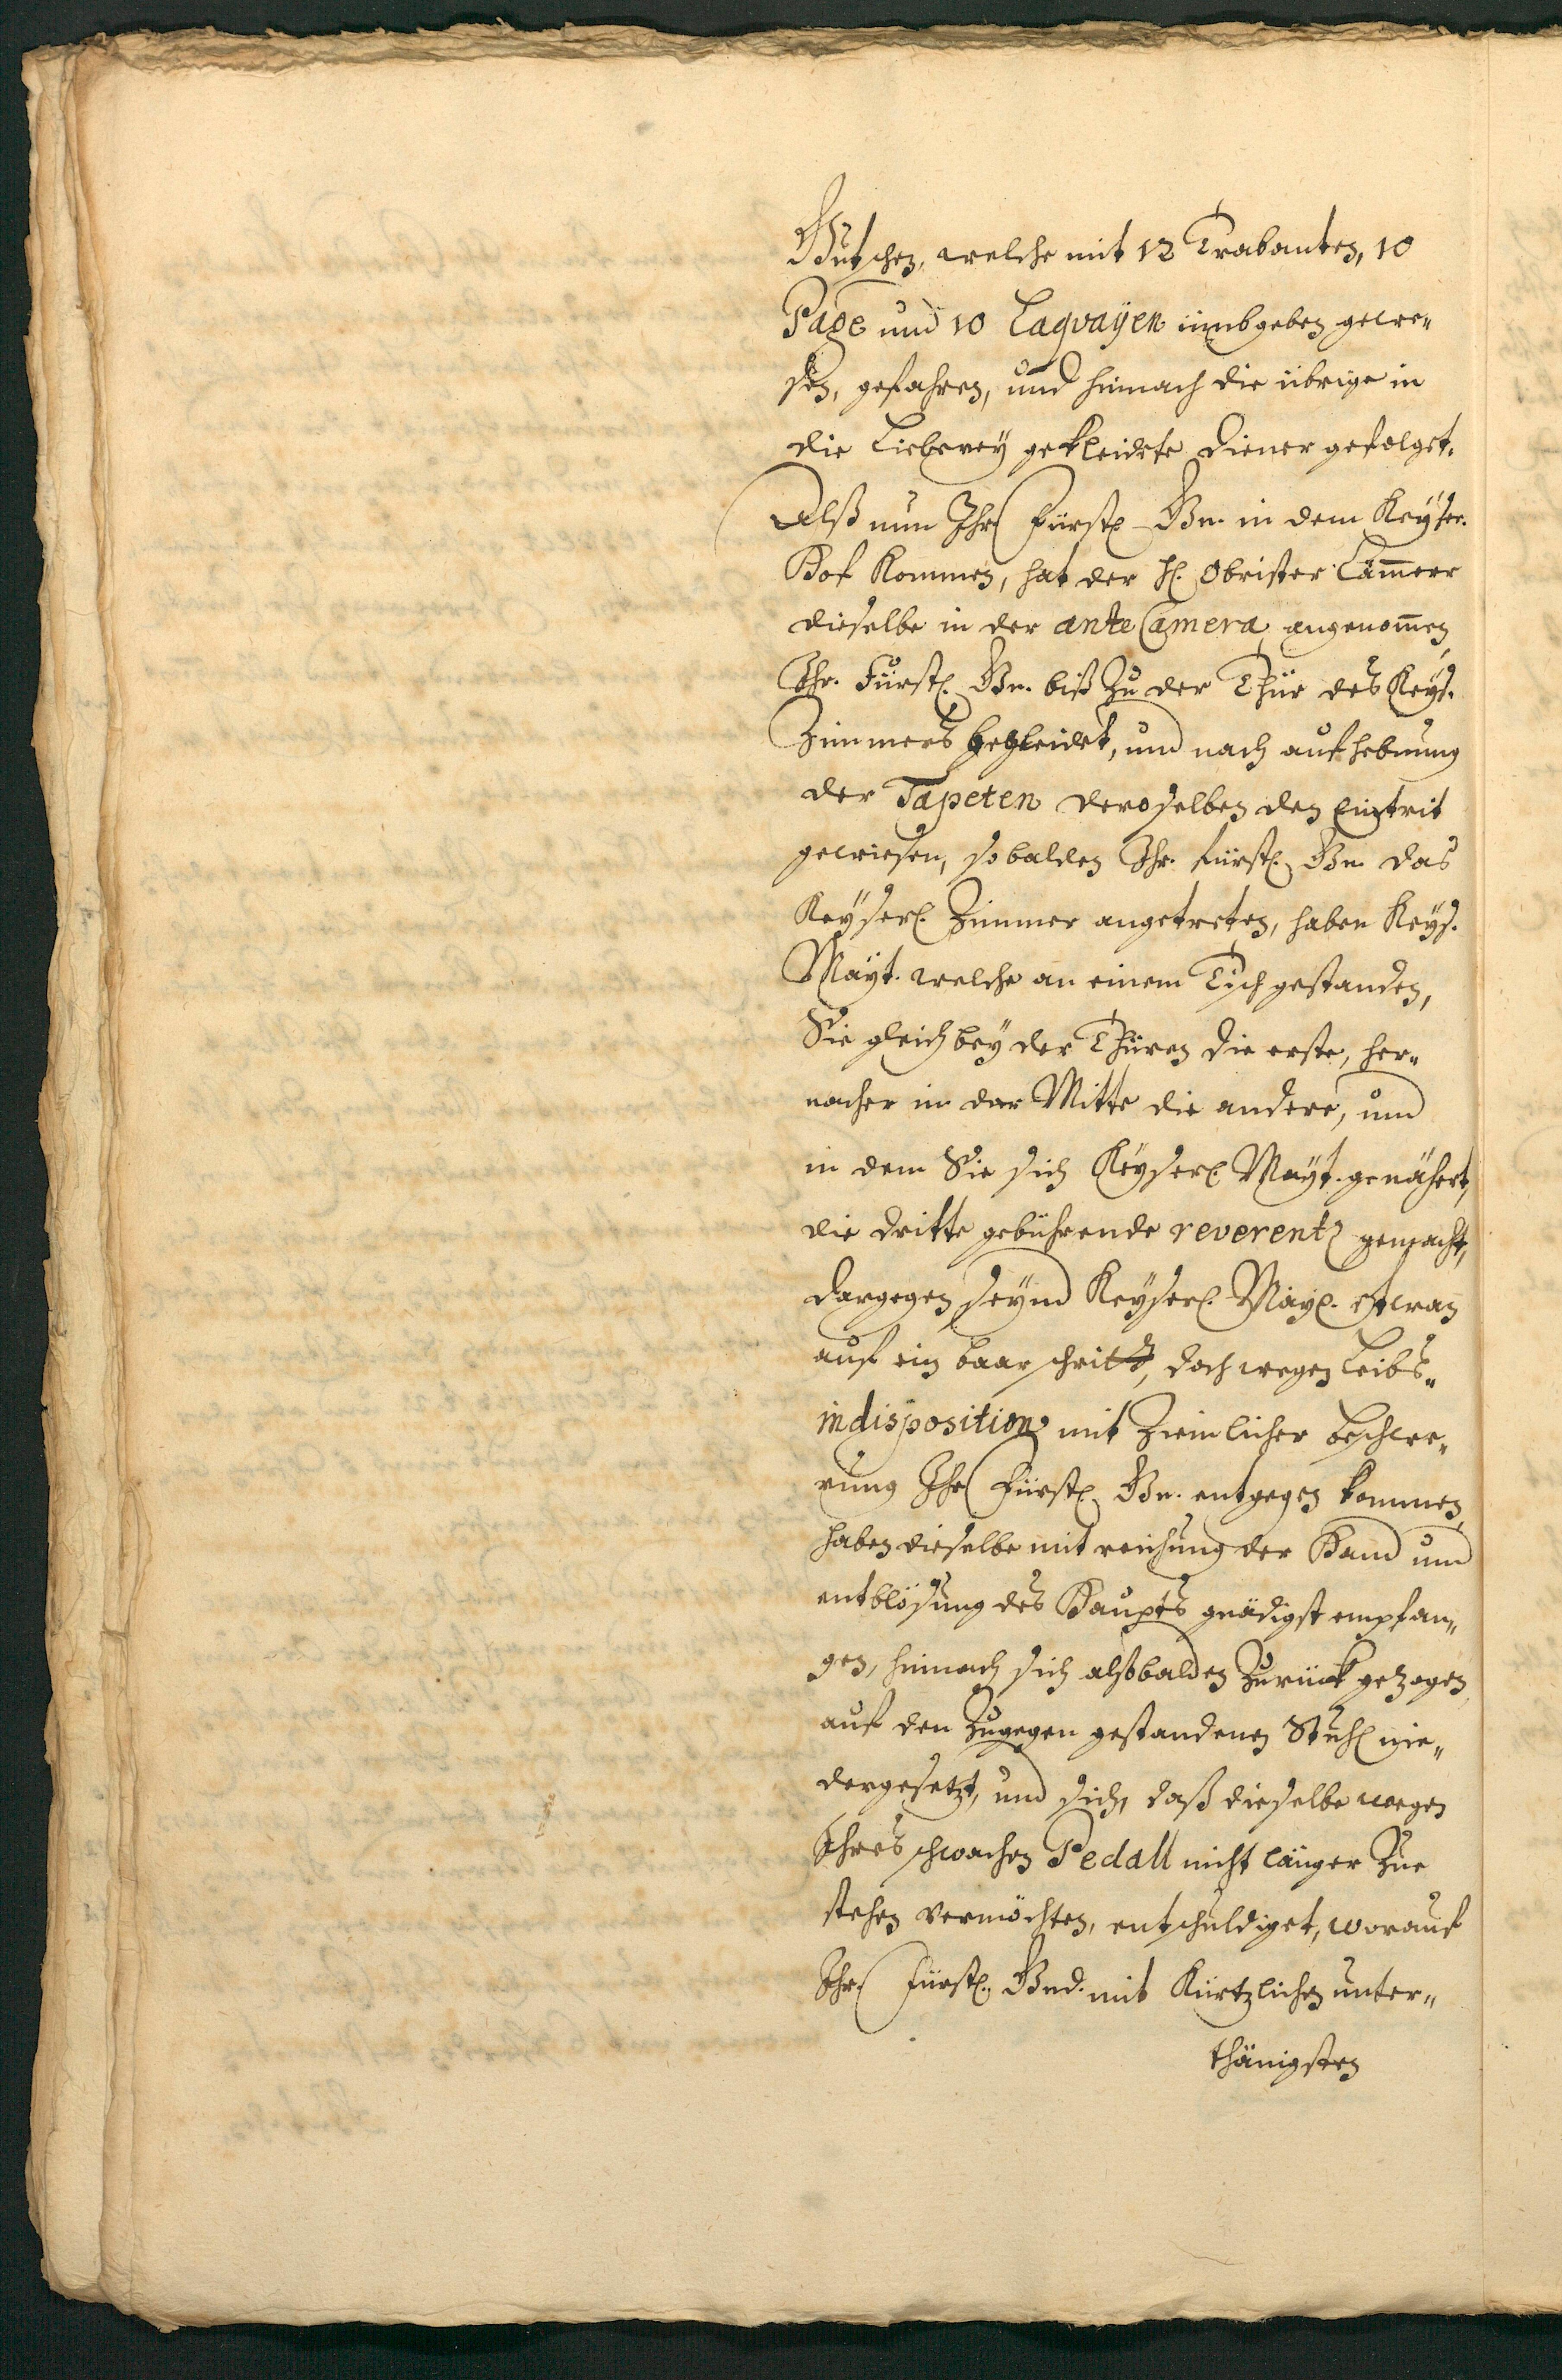 Gutschen, welche mit 12 Trabanten, 10
Page und 10 Laqvayen umbgeben gewe„
sen, gefahren, und hinnach die übrige in
die Lieberey gekleidete Diener gefolget.
Alß nun Ihr Fürstl. Gn. in dem Keyser.
Hof kommen, hat der H. Obrister Cammerer
dieselbe in der ante Camera angenommen,
Ihr. Fürstl. Gn. biß zu der Thür des Keys.
Zimmers begleidet, und nach aufhebung
der Tapeten deroselben den Eintrit
gewiesen, sobalden Ihr. fürstl. Gn. das
Keyserl. Zimmer angetreten, haben Keys.
Mayt. welche an einem Tisch gestanden,
Sie gleich bey der Thüren die erste, her„
nacher in der Mitte die andere, und
in dem Sie sich Keyserl. Mayt. genähert,
die dritte gebührende reverentz gemacht,
dargegen seynd Keyserl. May. etwan
auf ein baar schritt, doch wegen Leibs„
indisposition mit Ziemlicher beschwe„
rung Ihr Fürstl. Gn. entgegen kommen,
haben dieselbe mit reichung der Hand und
entblösung des Haupts gnädigst empfan„
gen, hinnach sich alßbalden Zurück gezogen,
auf den Zugegen gestandenen Stuhl nie„
dergesetzt, und sich, daß dieselbe wegen
Ihres schwachen Pedall nicht länger Zue
stehen vermöchten, entschuldiget, worauf
Ihr. Fürstl. Gnd. mit Kürtzlichen unter„
thänigsten